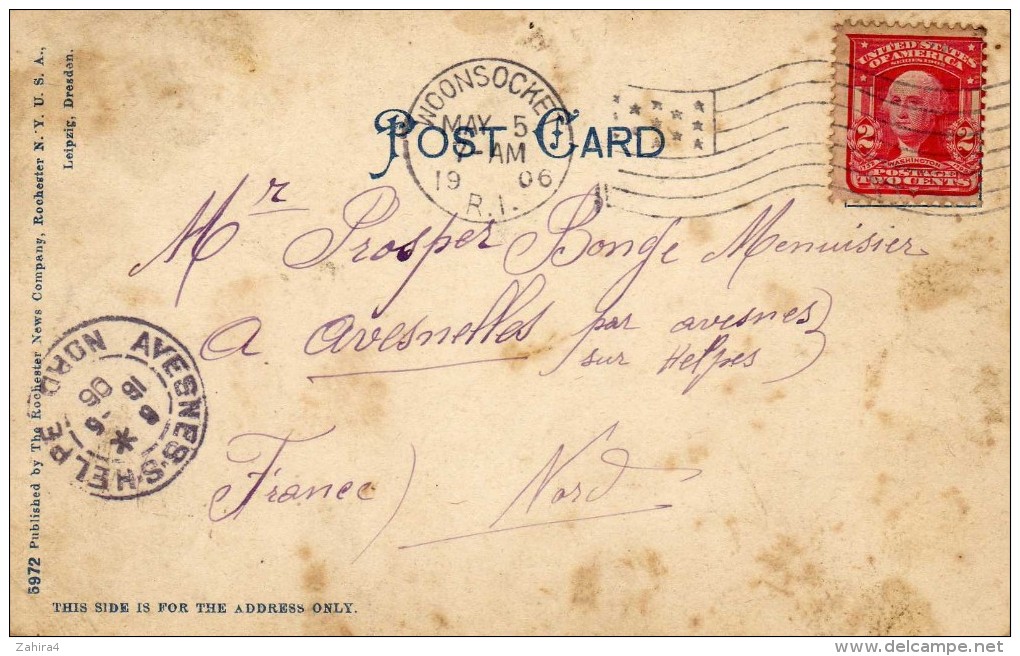 POST CARD
WOONSOCKET
MAY 5
7-AM
19 06
R.I.
UNITED STATES
OF AMERICA
SERIES 1902
2 2
WASHINGTON
POSTAGE
TWO CENTS
Mr Prosper Bonge Menuisier
a avesnelles par avesnes
sur Helpes
France) - Nord
AVESNES-S-HELPE NORD
06
5972 Published by The Rochester News Company, Rochester N. Y. U. S. A.,
Leipzig, Dresden.
THIS SIDE IS FOR THE ADDRESS ONLY.
Zahira4
www.delcampe.net